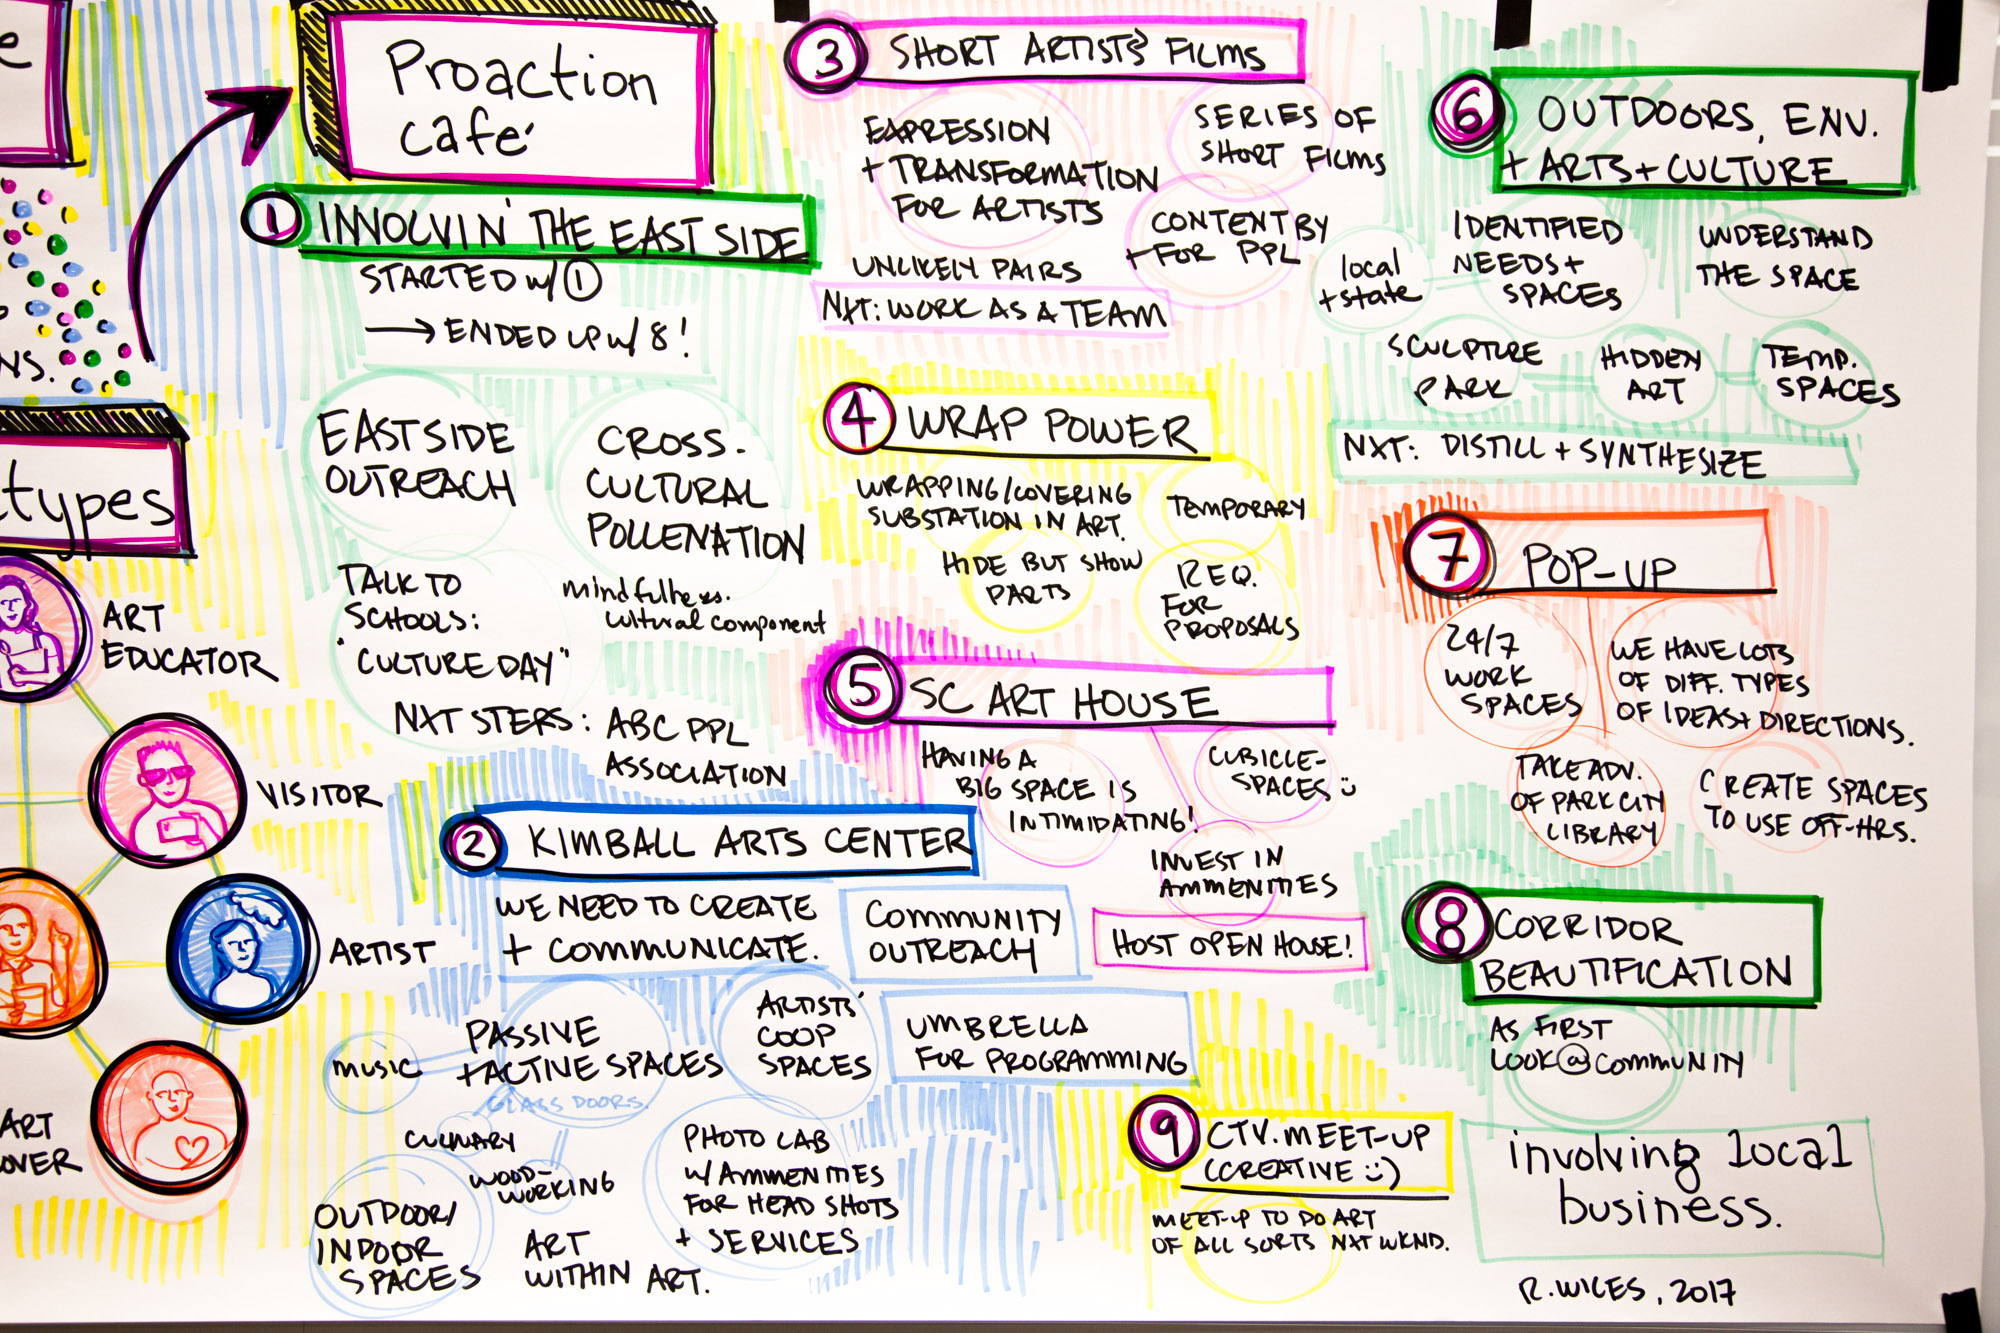 e
NS.
types
ART
EDUCATOR
VISITOR
ARTIST
ART
OVER
Proaction
café
1 INVOLVIN' THE EAST SIDE
STARTED w/ 1
→ ENDED UP w/ 8!
EASTSIDE
OUTREACH
CROSS-
CULTURAL
POLLENATION
TALK TO
SCHOOLS:
"CULTURE DAY"
mindfulness.
cultural component
NXT STEPS: ABC PPL
ASSOCIATION
2 KIMBALL ARTS CENTER
WE NEED TO CREATE
+ COMMUNICATE.
COMMUNITY
OUTREACH
music
PASSIVE
+ACTIVE SPACES
GLASS DOORS.
ARTISTS'
COOP
SPACES
UMBRELLA
FOR PROGRAMMING
CULINARY
WOOD-
WORKING
OUTDOOR/
INDOOR
SPACES
ART
WITHIN ART.
PHOTO LAB
W/AMMENITIES
FOR HEAD SHOTS
+ SERVICES
3 SHORT ARTISTS' FILMS
EXPRESSION
+ TRANSFORMATION
FOR ARTISTS
SERIES OF
SHORT FILMS
CONTENT BY
+ FOR PPL
UNLIKELY PAIRS
NXT: WORK AS A TEAM
4 WRAP POWER
WRAPPING/COVERING
SUBSTATION IN ART.
TEMPORARY
HIDE BUT SHOW
PARTS
REQ.
FOR
PROPOSALS
5 SC ART HOUSE
HAVING A
BIG SPACE IS
INTIMIDATING!
CUBICLE-
SPACES :)
INVEST IN
AMMENITIES
HOST OPEN HOUSE!
6 OUTDOORS, ENV.
+ ARTS + CULTURE
local
+ state
IDENTIFIED
NEEDS +
SPACES
UNDERSTAND
THE SPACE
SCULPTURE
PARK
HIDDEN
ART
TEMP.
SPACES
NXT: DISTILL + SYNTHESIZE
7 POP-UP
24/7
WORK
SPACES
WE HAVE LOTS
OF DIFF. TYPES
OF IDEAS + DIRECTIONS.
TAKE ADV.
OF PARK CITY
LIBRARY
CREATE SPACES
TO USE OFF-HRS.
8 CORRIDOR
BEAUTIFICATION
AS FIRST
LOOK @ COMMUNITY
involving local
business.
9 CTV. MEET-UP
(CREATIVE :))
MEET-UP TO DO ART
OF ALL SORTS NXT WKND.
R. WILES, 2017